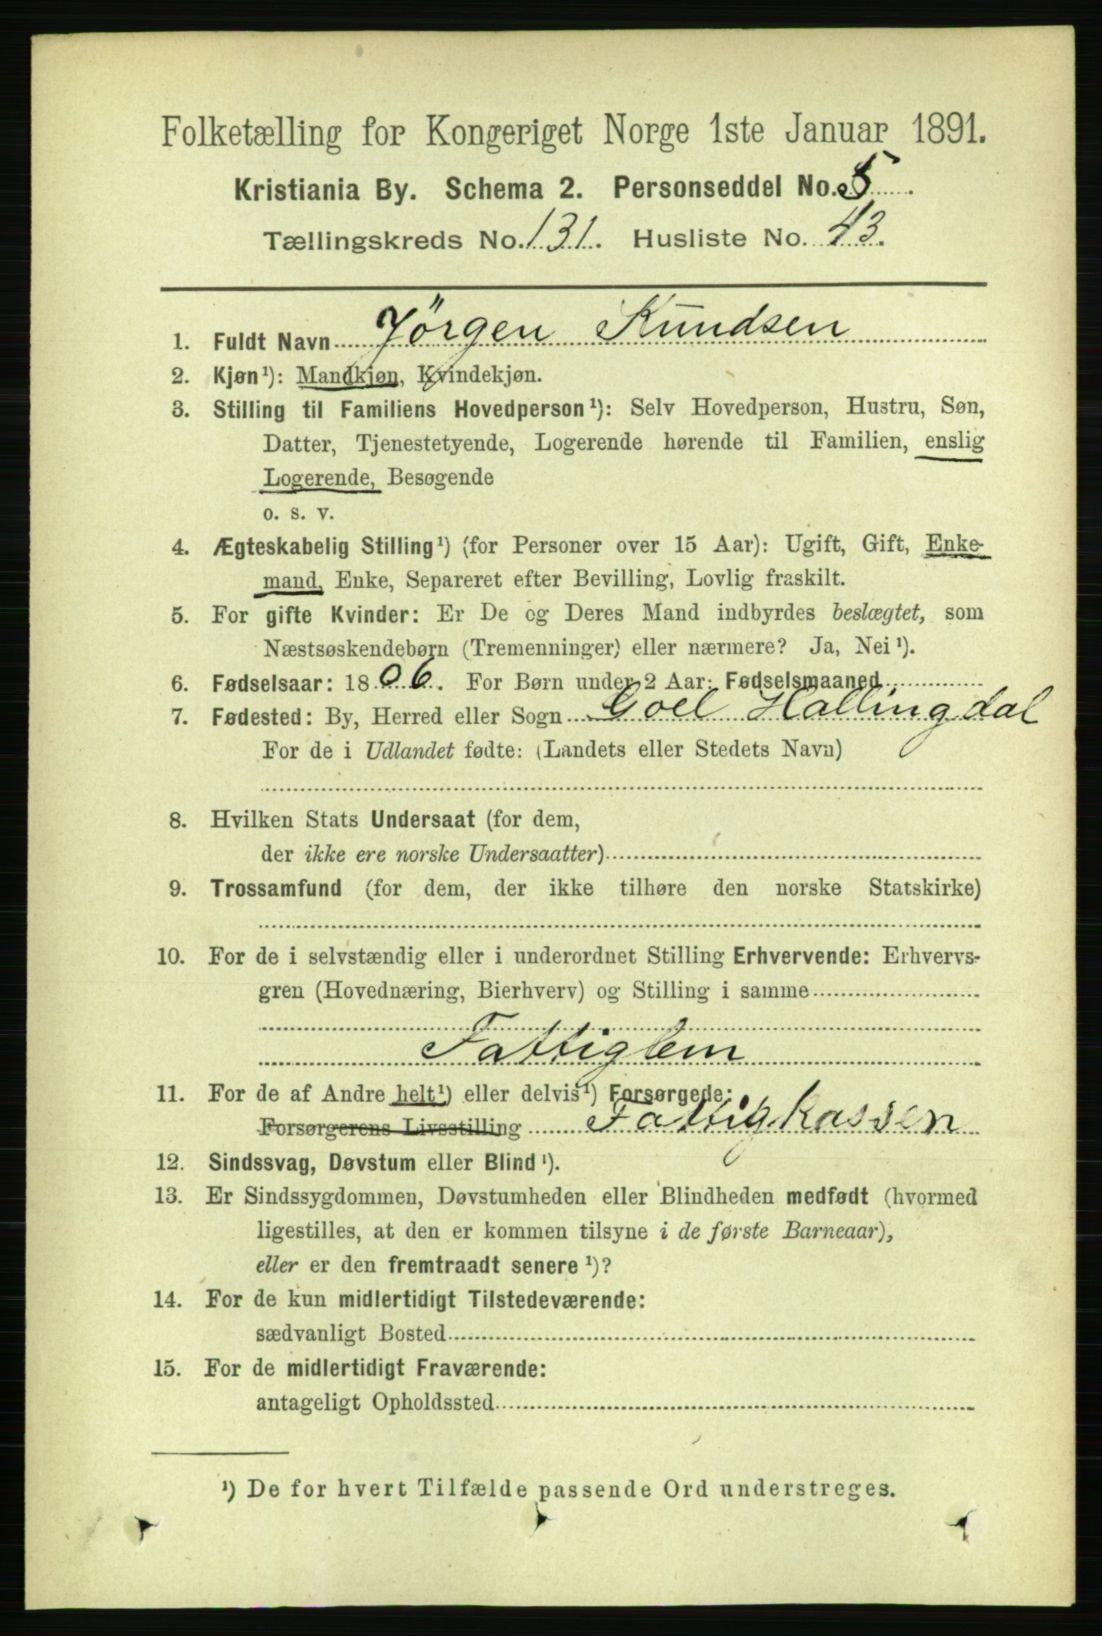 Folketælling for Kongeriget Norge 1ste Januar 1891.
Kristiania By. Schema 2. Personseddel No. 5.
Tællingskreds No. 131. Husliste No. 43.
1. Fuldt Navn Jörgen Kundsen
2. Kjøn¹): Mandkjøn, Kvindekjøn.
3. Stilling til Familiens Hovedperson¹): Selv Hovedperson, Hustru, Søn,
Datter, Tjenestetyende, Logerende hørende til Familien, enslig
Logerende, Besøgende
o. s. v.
4. Ægteskabelig Stilling¹) (for Personer over 15 Aar): Ugift, Gift, Enke-
mand, Enke, Separeret efter Bevilling, Lovlig fraskilt.
5. For gifte Kvinder: Er De og Deres Mand indbyrdes beslægtet, som
Næstsøskendebørn (Tremenninger) eller nærmere? Ja, Nei¹).
6. Fødselsaar: 1806. For Børn under 2 Aar: Fødselsmaaned
7. Fødested: By, Herred eller Sogn Goel Hallingdal
For de i Udlandet fødte: (Landets eller Stedets Navn)
8. Hvilken Stats Undersaat (for dem,
der ikke ere norske Undersaatter)
9. Trossamfund (for dem, der ikke tilhøre den norske Statskirke)
10. For de i selvstændig eller i underordnet Stilling Erhvervende: Erhvervs-
gren (Hovednæring, Bierhverv) og Stilling i samme
Fattiglem
11. For de af Andre helt¹) eller delvis¹) Forsørgede:
Forsørgerens Livsstilling Fattigkassen
12. Sindssvag, Døvstum eller Blind¹).
13. Er Sindssygdommen, Døvstumheden eller Blindheden medfødt (hvormed
ligestilles, at den er kommen tilsyne i de første Barneaar),
eller er den fremtraadt senere¹)?
14. For de kun midlertidigt Tilstedeværende:
sædvanligt Bosted
15. For de midlertidigt Fraværende:
antageligt Opholdssted
¹) De for hvert Tilfælde passende Ord understreges.